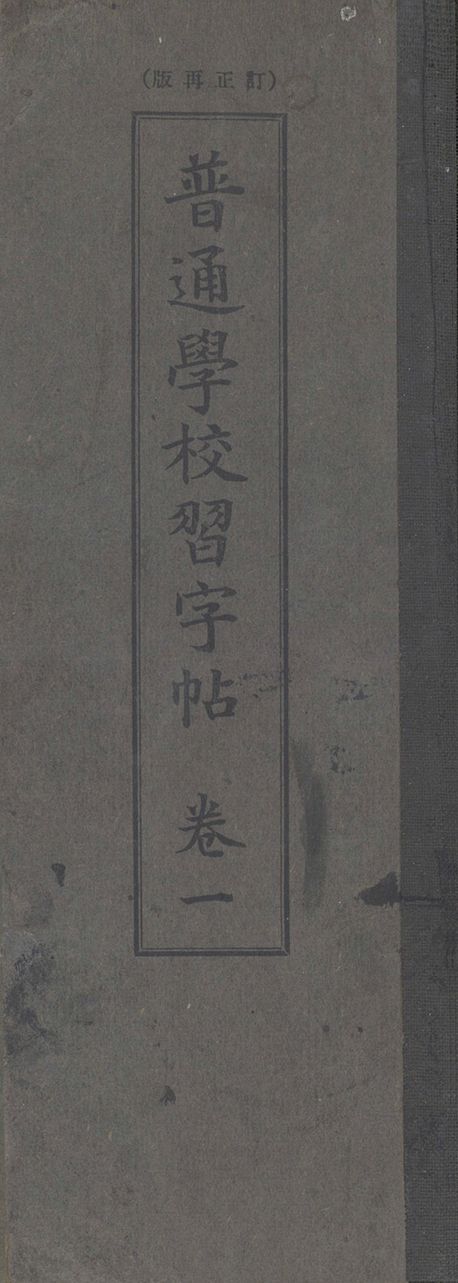 (訂正再版)
普通學校習字帖 卷一